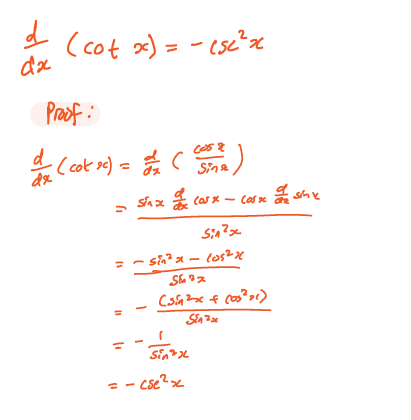 d/dx (cot x) = - csc²x
Proof:
d/dx (cot x) = d/dx (cos x / sin x)
= (sin x d/dx cos x - cos x d/dx sin x) / sin²x
= (- sin²x - cos²x) / sin²x
= - (sin²x + cos²x) / sin²x
= - 1 / sin²x
= - csc²x